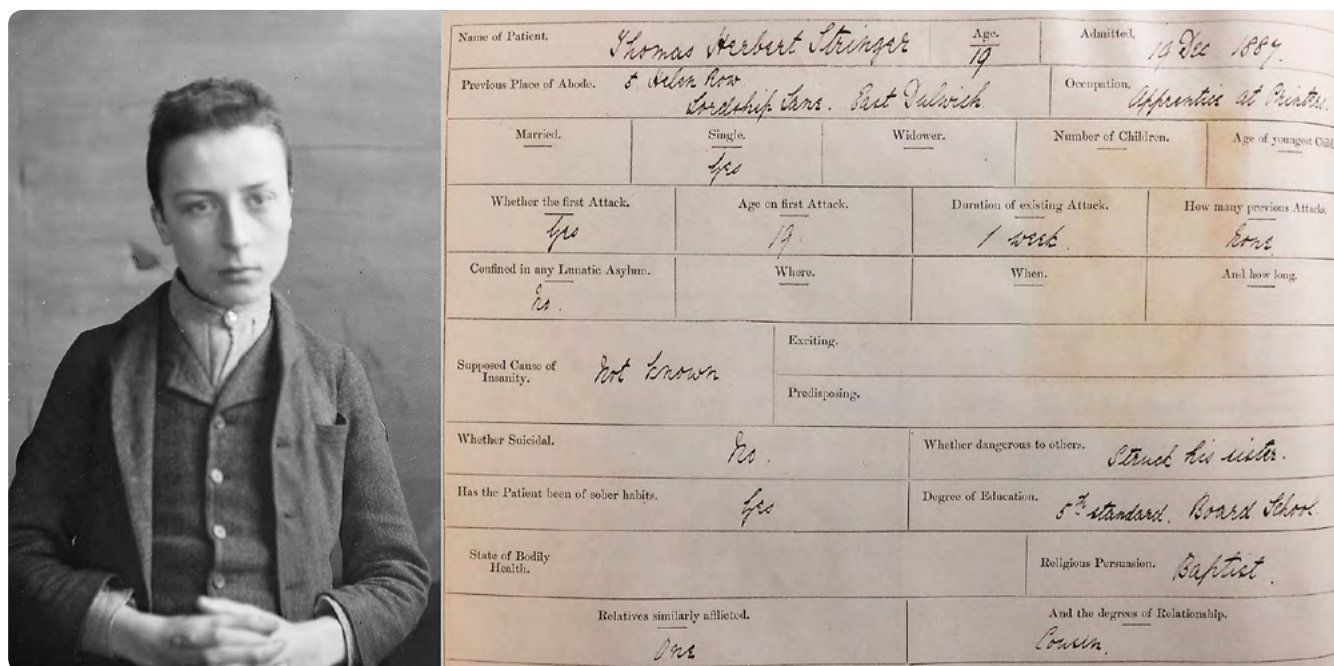 Name of Patient. Thomas Herbert Stringer Age. 19 Admitted, 19 Dec 1887.
Previous Place of Abode. 5 Helen Row
Lordship Lane. East Dulwich Occupation. Apprentice at Printers.
Married. Single. Widower. Number of Children. Age of youngest Child
Yes
Whether the first Attack. Age on first Attack. Duration of existing Attack. How many previous Attacks.
Yes 19. 1 week. None
Confined in any Lunatic Asylum. Where. When. And how long.
No.
Supposed Cause of
Insanity. Not known
Exciting.
Predisposing.
Whether Suicidal. No. Whether dangerous to others. Struck his sister.
Has the Patient been of sober habits. Yes Degree of Education. 5th standard. Board School.
State of Bodily
Health.
Religious Persuasion. Baptist.
Relatives similarly afflicted. And the degrees of Relationship.
One Cousin.